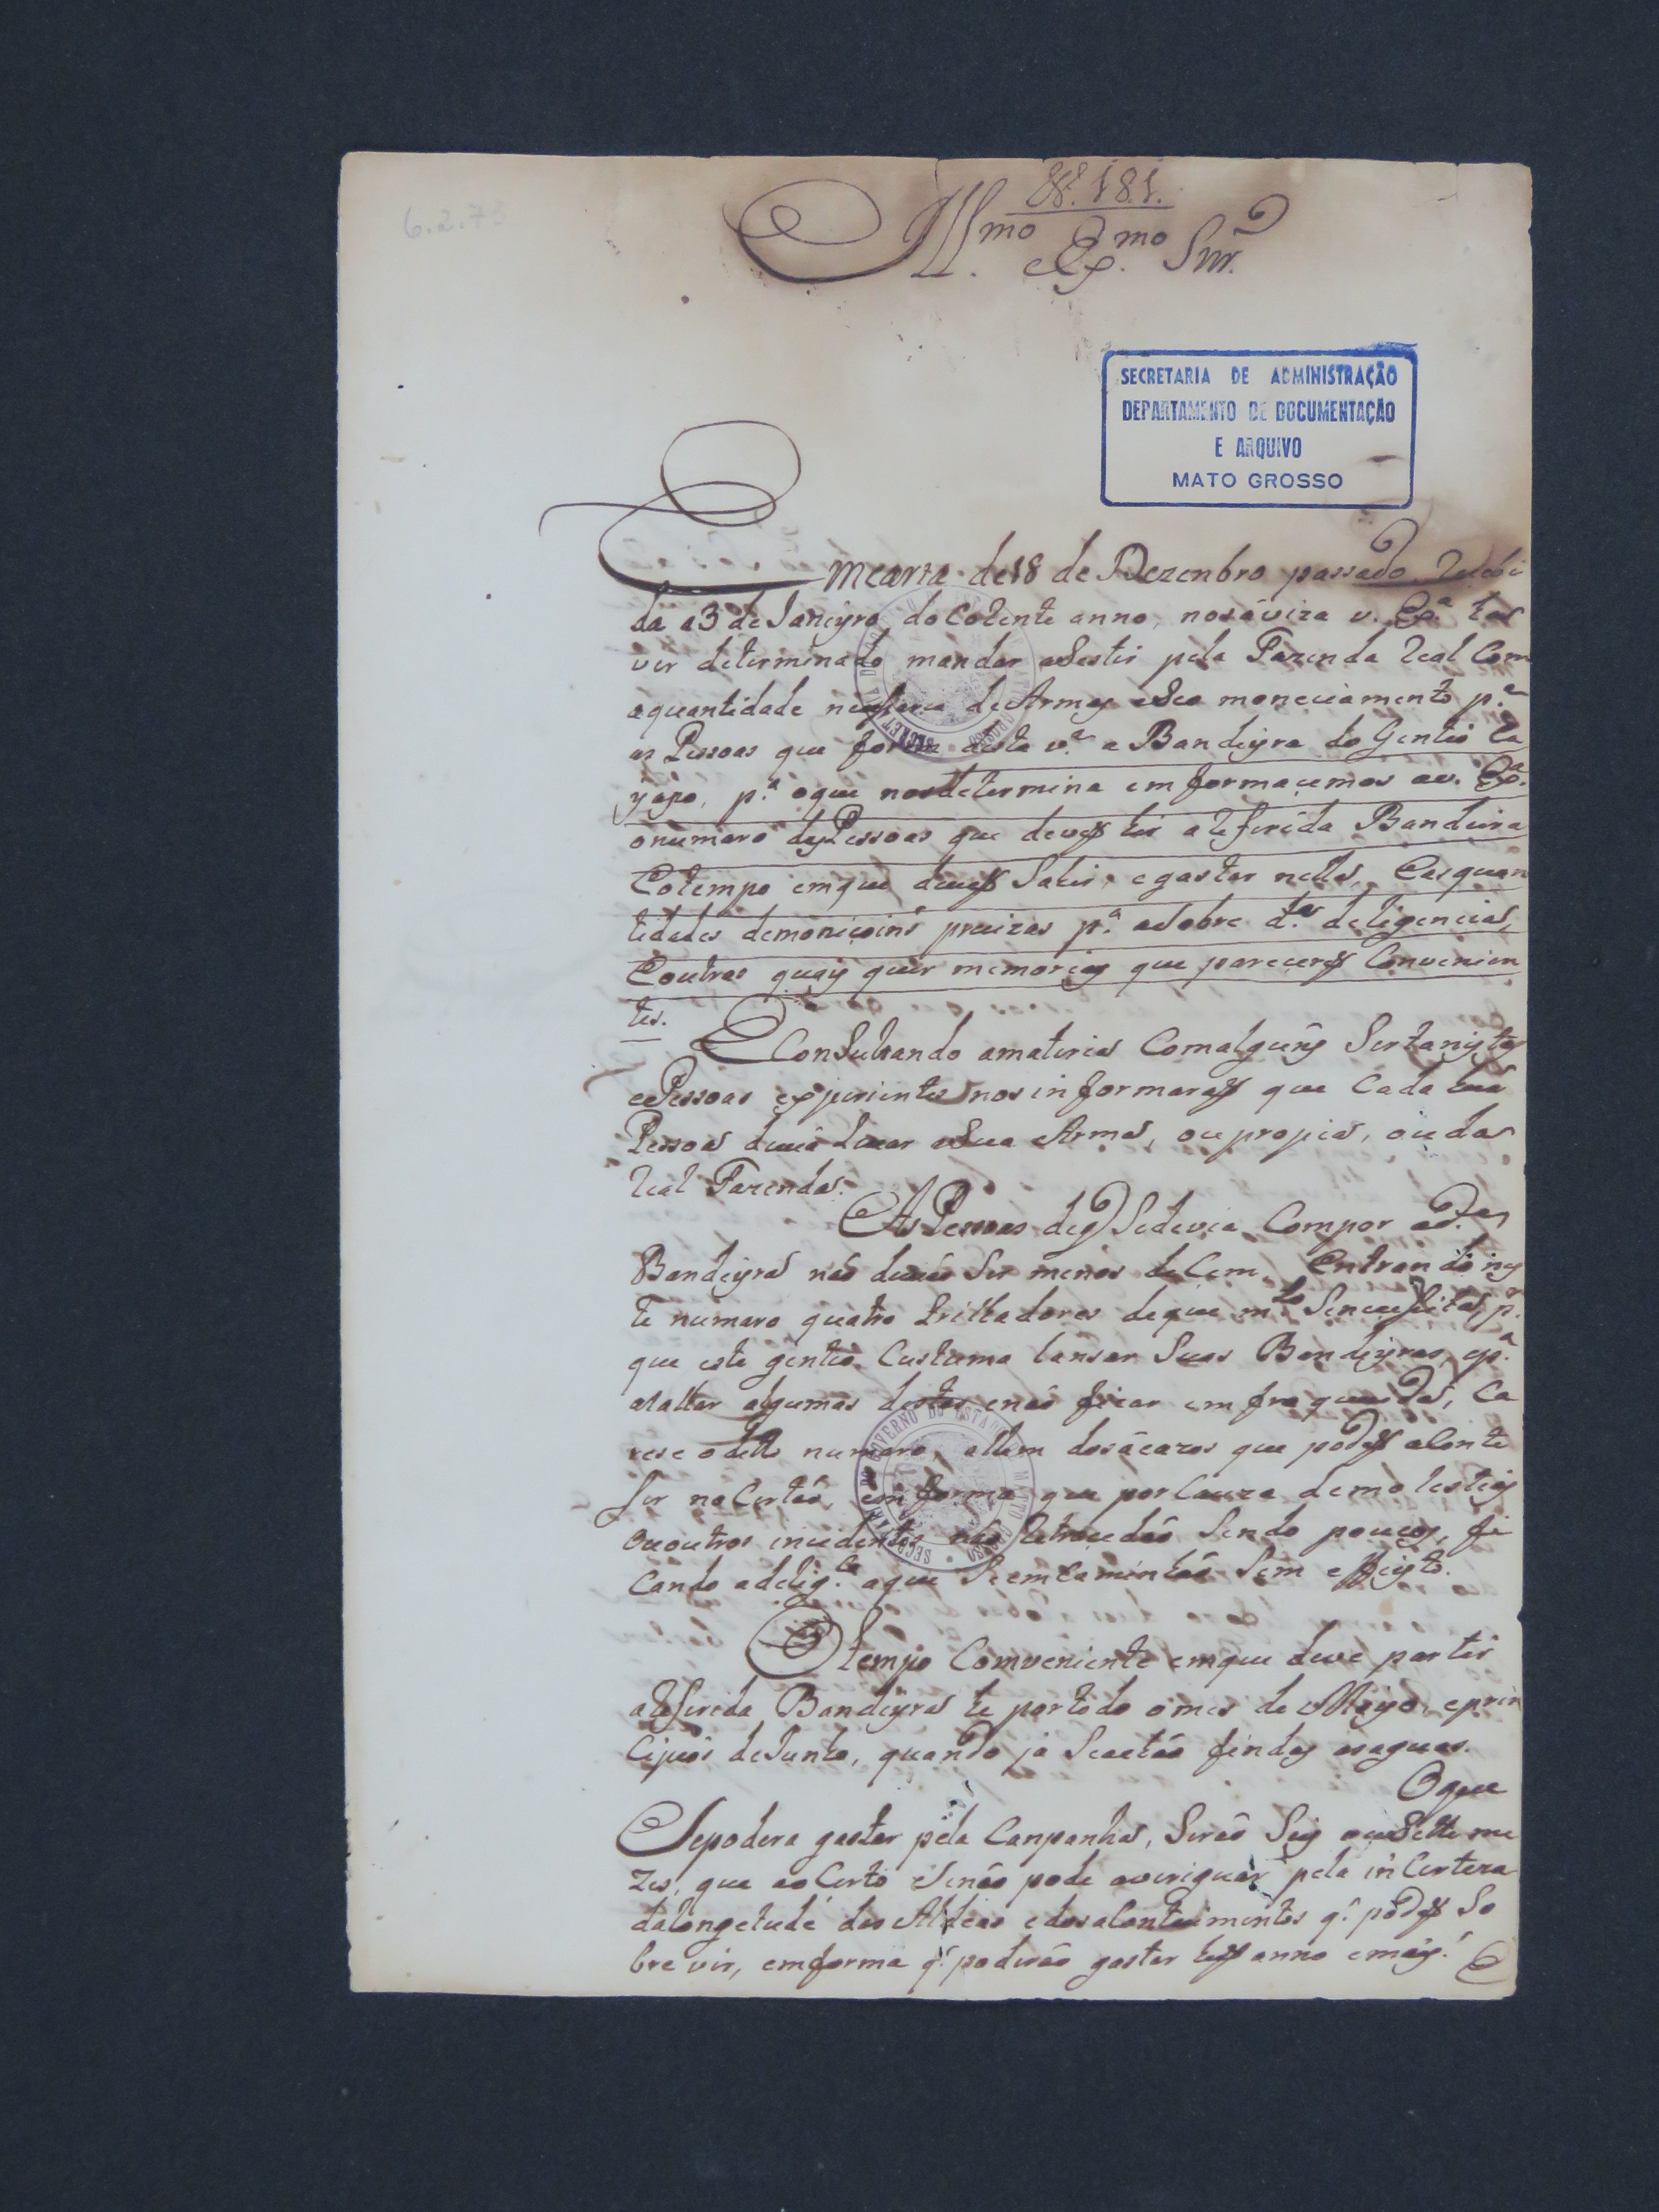 6.2.73
N.º 181.
Ill.mo Ex.mo Snr.
SECRETARIA DE ADMINISTRAÇÃO
DEPARTAMENTO DE DOCUMENTAÇÃO
E ARQUIVO
MATO GROSSO
Emcarta de 18 de Dezenbro passado Recebi
da a 3 de Janeyro do Corente anno, nos aviza v. Ex.ª ter
ver determinado mandar asestir pela Fazenda Real Com
aquantidade de Armas eseo moneciamento p.ª
as Pessoas que forem desta v.ª a Bandeyra do Gentio Ca
yapo, p.ª oque nos determina emformacemos av. Ex.ª
onumaro das Pessoas que devem hir a Referida Bandeira
Eotempo emque devem Sahir, egastar nella, Easquan
tidades demonicoins precizas p.ª asobre d.ª deligencia,
Eoutras quays quer memorias que parecerem Convenien
tes.
Consultando amateria Comalguns Sertanistas
ePessoas experientes nos informaram que Cada hua
Pessoa devia Levar aSua Arma, ou propia, ou da
Real Fazenda.
As Pessoas deq Sedevia Compor ad.ª
Bandeyra não devião Ser menos de Cem, Entrando nes
te numaro quatro trilhadores deque m.to Senecesita, p.r
que este gentio Custuma lansar Suas Bandeyras, ep.ª
atalhar algumas destas enão ficar emfraquesida, Ca
rese odito numaro, allem dos acazos que podem aConte
ser no Certão, em forma que por Cauza demolestias
Ououtros incidentes não Retrocedão Sendo poucos, fi
Cando adelig.ca aque Seemcaminhão Sem effeyto.
O tempo Comveniente emque deve partir
aReferida Bandeyra he por todo omes de Mayo, eprin
Cipios de Junho, quando ja Seachão findas asaguas.
Oque
Sepodera gastar pela Canpanha, Serão Seis ou Sette me
zes, que ao Certo Senão pode averiguar pela inCerteza
dalongetude das Aldeas edosaContecimentos q. podem So
bre vir, emforma q. poderão gastar hum anno emais. E